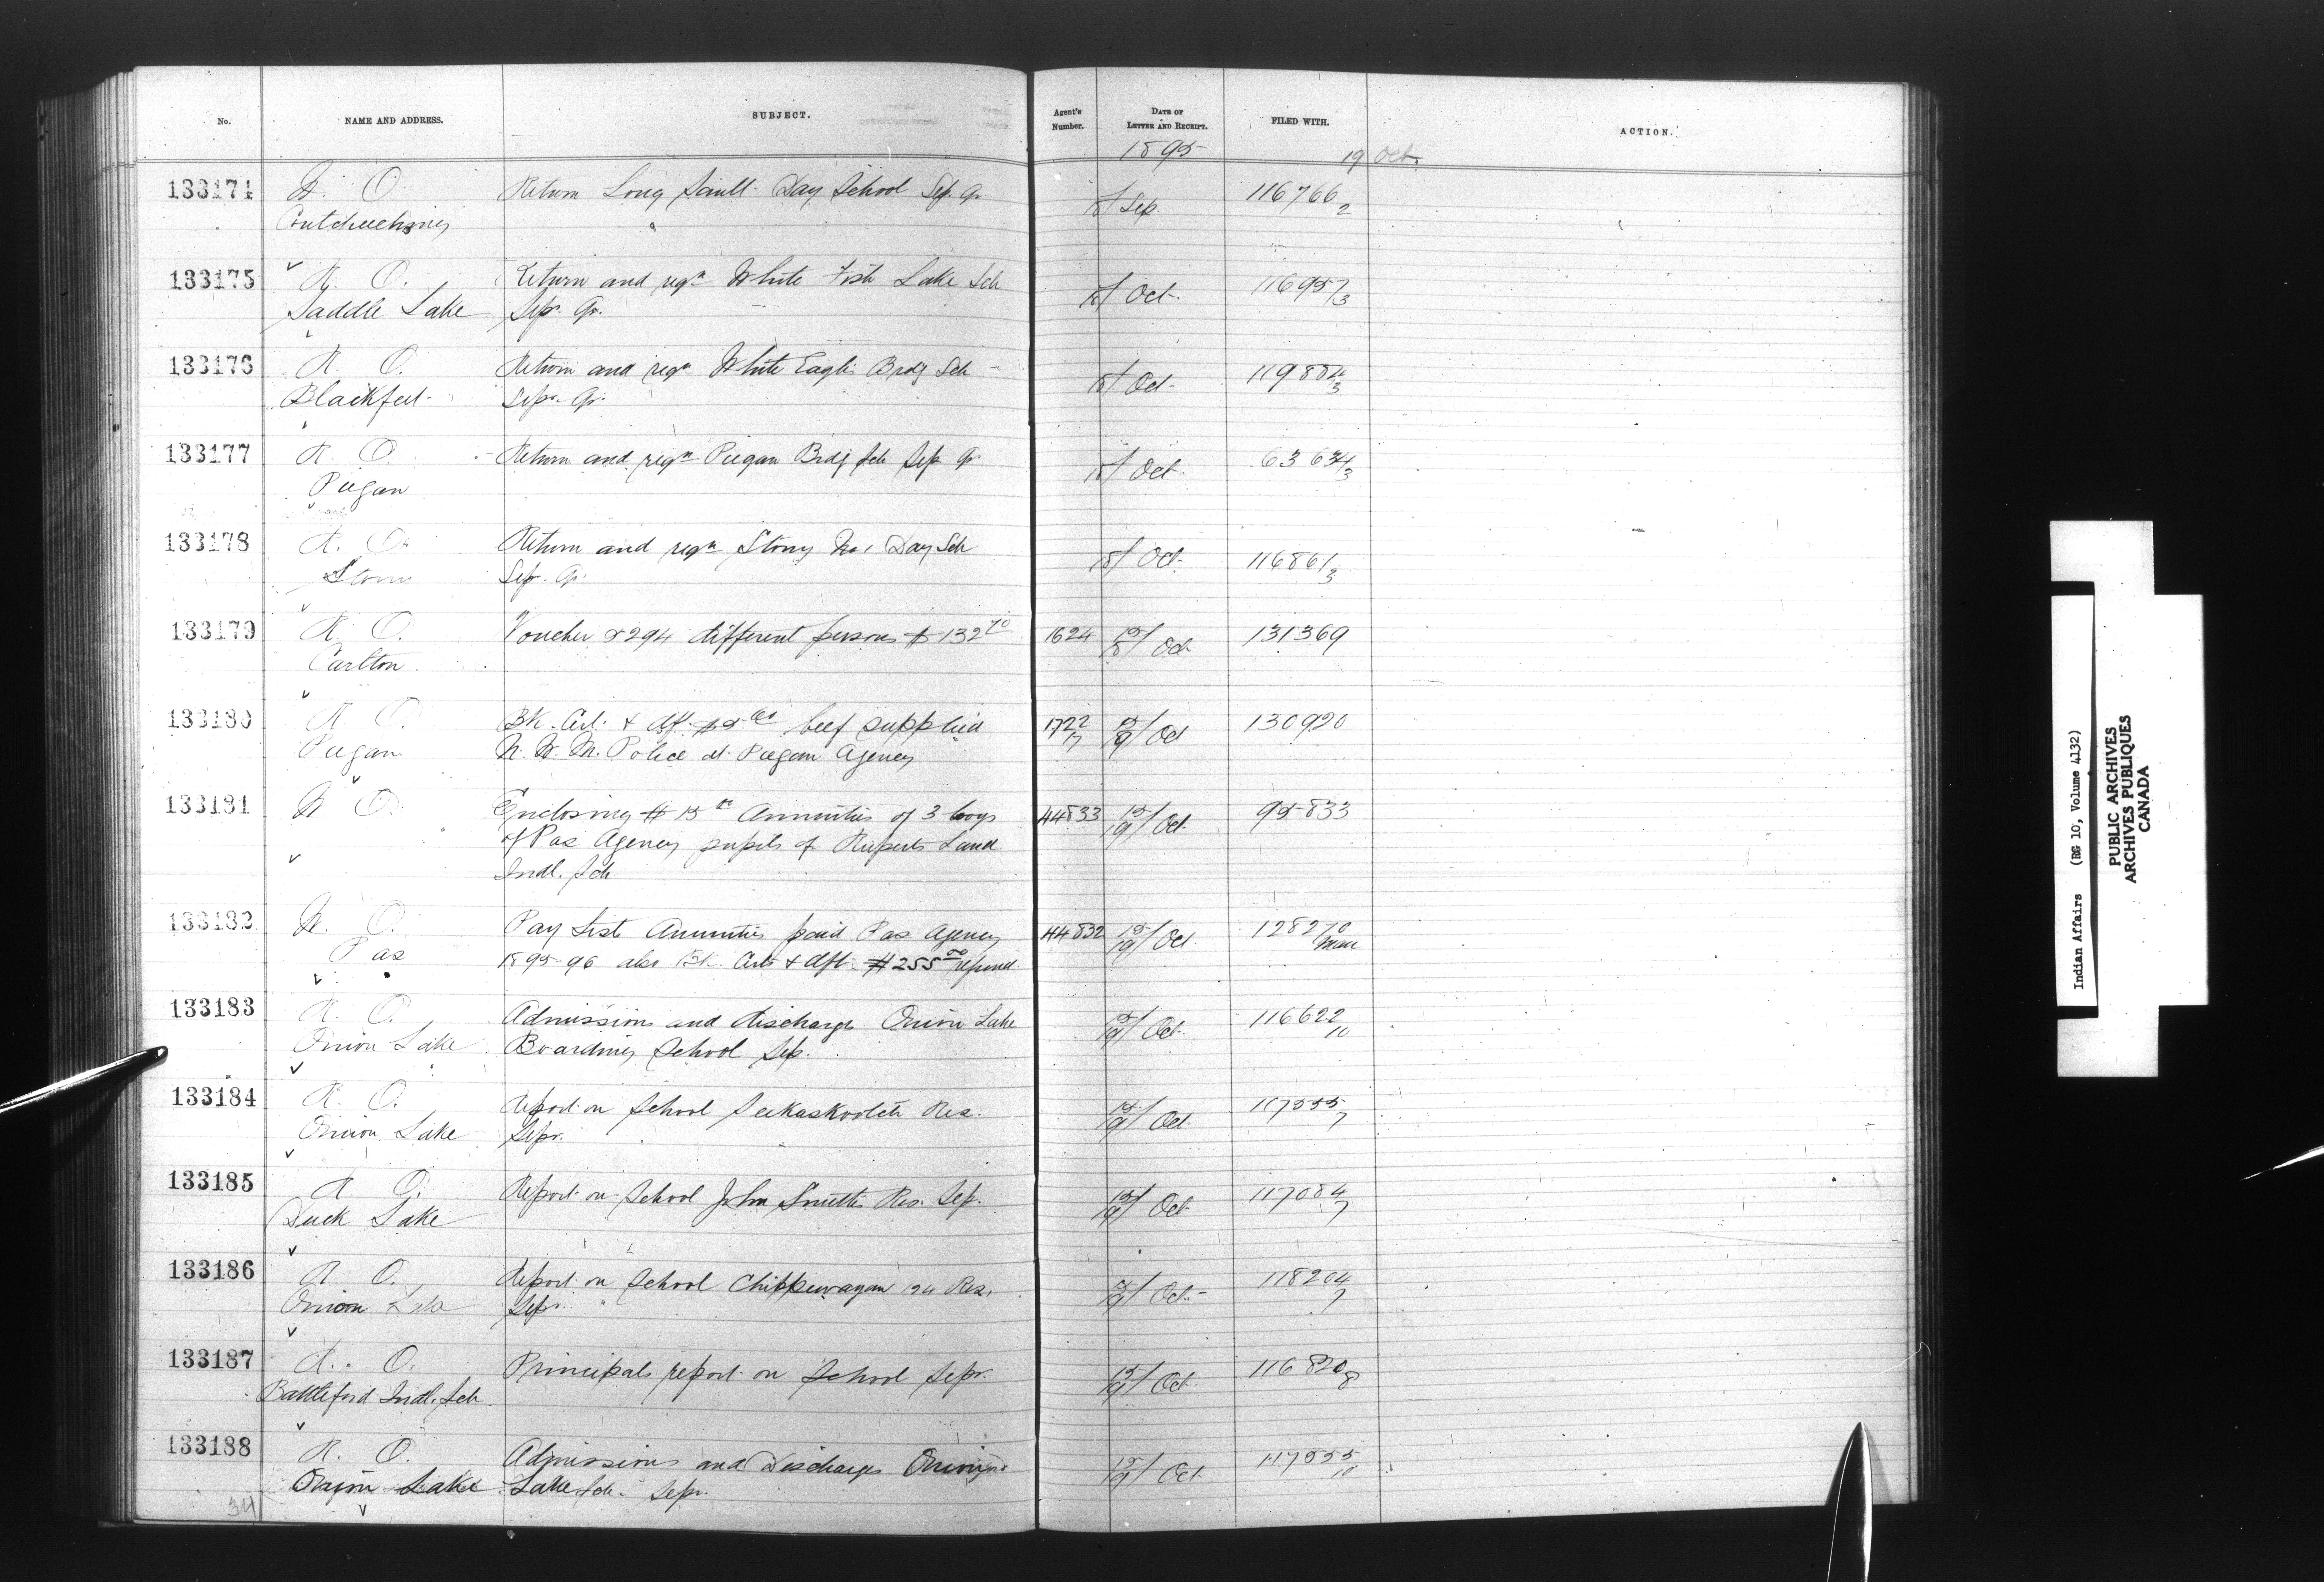 No. NAME AND ADDRESS. SUBJECT. Agent's Number. DATE OF LETTER AND RECEIPT. FILED WITH. ACTION.
1895 19 Oct.
133174 W. O. Return Long Sault Day School Sep. Qr. 18/ Sep 116766/2
Coutcheeching
133175 R. O. Return and reqn White Fish Lake Sch 18/ Oct. 116957/3
Saddle Lake Sepr. Qr.
133176 R. O. Return and reqn White Eagle Brdg Sch 18/ Oct. 119884/3
Blackfeet Sepr. Qr.
133177 R. O. Return and reqn Piegan Brdg Sch Sep Qr. 18/ Oct. 63634/3
Piegan
133178 R. O. Return and reqn Stony No 1 Day Sch 18/ Oct. 116861/3
Stony Sep. Qr.
133179 R. O. Voucher &294 different persons $132 70 1624 15/18 Oct 131369
Carlton
133180 R. O. Bk. Crt. & dft. beef supplied 1722/7 15/19 Oct 130920
Piegan N. W. M. Police at Piegan Agency
133181 W. O. Enclosing $15 00 Annuities of 3 boys 44833 15/19 Oct. 95833
of Pas Agency pupils of Ruperts Land
Indl. Sch.
133182 W. O. Pay Lists Annuities paid Pas Agency 44832 15/19 Oct. 128270
Pas 1895-96 also Bk. Crt. & dft. $255 00 refund. Man
133183 R. O. Admissions and discharge Onion Lake 15/19 Oct. 116622/10
Onion Lake Boarding School Sep.
133184 R. O. Report on School Seekaskootch Res. 15/19 Oct 117555/7
Onion Lake Sepr.
133185 R. O. Report on School John Smiths Res. Sep. 15/19 Oct 117084/7
Duck Lake
133186 R. O. Report on School Chippewayan 124 Res. 15/19 Oct. 118204/7
Onion Lake Sepr.
133187 R. O. Principals report on School Sepr. 15/19 Oct. 116820/8
Battleford Indl. Sch
133188 R. O. Admissions and Discharges Onion 15/19 Oct 117555/10
Onion Lake Lake Sch. Sepr.
34
Indian Affairs (RG 10, Volume 4132)
PUBLIC ARCHIVES
ARCHIVES PUBLIQUES
CANADA